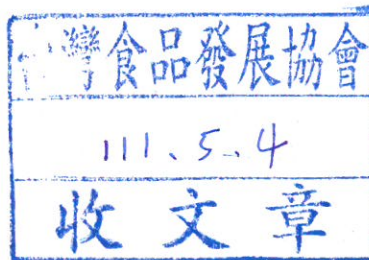 台灣食品發展協會
111、5、4
收文章